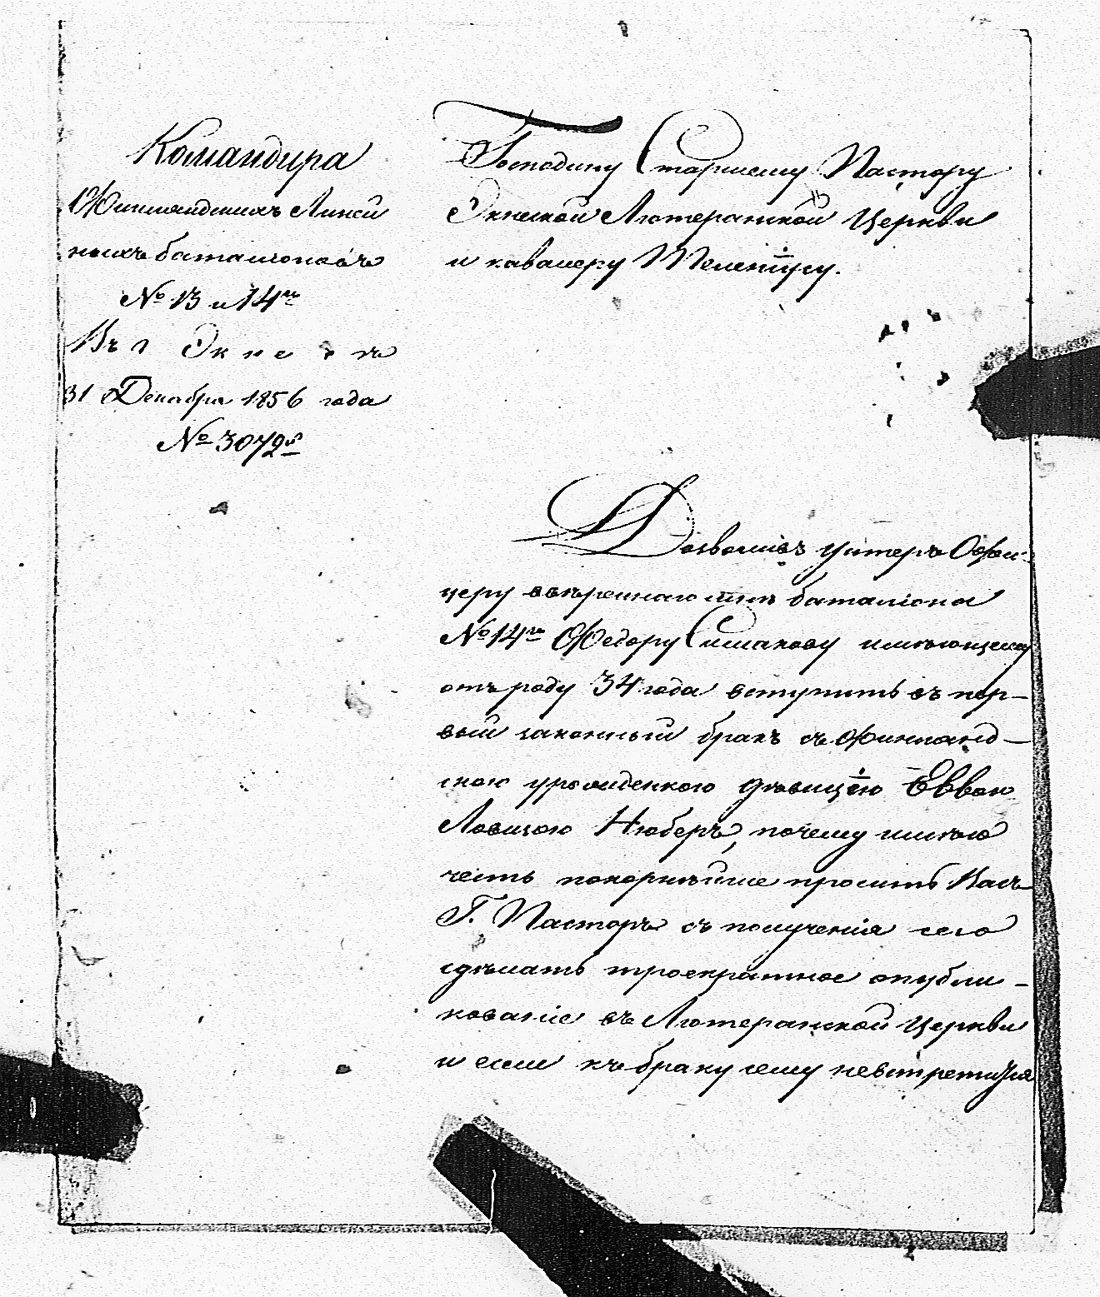 Командира
Финляндскихъ Линей
ныхъ баталіоновъ
№ 13 и 14го
Въ г Экнесъ
31 Декабря 1856 года
№ 3072й
Господину Старшему Пастору
Экнеской Лютеранской Церкви
и кавалеру
Дозволивъ унтеръ Офи-
церу ввѣреннаго мнѣ баталіона
№ 14го Федору Симакову имѣющему
отъ роду 34 года вступить въ пер-
вый законный бракъ съ Финлянд-
скою уроженкою дѣвицею Еввою
Ловизою Нюберъ, почему имѣю
честь покорнѣйше просить Васъ
Г. Пасторъ съ полученія сего
сдѣлать троекратное опубли-
кованіе въ Лютеранской Церкви
и если къ браку сему невстретится